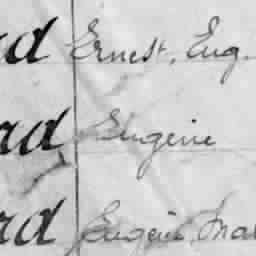 rd Ernest, Eug.
rd Eugène
rd Eugène, Mar